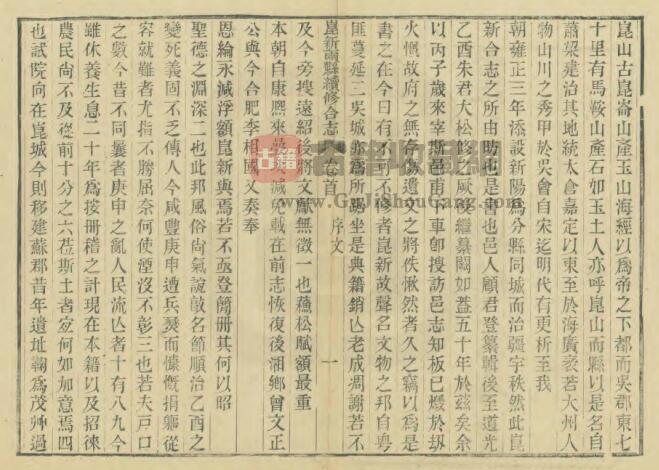 崑山古崑崙山產玉山海經以爲帝之下都而吳郡東七
十里有馬鞍山產石如玉土人亦呼崑山而縣以是名自
蕭梁建治其地統太倉嘉定以東至於海廣袤若大州人
物山川之秀甲於吳會自宋迄明代有更析至我
朝雍正三年添設新陽爲分縣同城而治疆宇秩然此崑
新合志之所由昉也是書也邑人顧君登纂輯後至道光
乙酉朱君大松修之厥後繼纂闕如蓋五十年於茲矣余
以丙子歲來宰斯邑甫下車卽搜訪邑志知板已燬於刼
火慨故府之無存傷遺文之將佚愀然者久之竊以爲是
書之在今日有不可不修者崑新故聲名文物之邦自粵
匪蔓延三吳城亦爲所踞坐是典籍銷亾老成凋謝若不
崑新兩縣續修合志 卷首 序文 一
及今旁搜遠紹後將文獻無徵一也蘇松賦額最重
本朝自康熙來 減免載在前志恢復後湘鄉曾文正
公與今合肥李相國又奏奉
恩綸永減浮額崑新與焉若不亟登簡冊其何以昭
聖德之淵深二也此邦風俗尙氣誼敦名節順治乙酉之
變死義固不乏傳人今咸豐庚申遭兵燹而慷慨捐軀從
容就難者尤指不勝屈奈何使湮沒不彰三也若夫戶口
之數今昔不同曩者庚申之亂人民流亾者十有八九今
雖休養生息二十年爲按冊稽之計現在本籍以及招徠
農民尙不及從前十分之六蒞斯土者宐何如加意焉四
也試院向在崑城今則移建蘇郡昔年遺址鞠爲茂艸過
古籍
www.GuJiShouCang.com